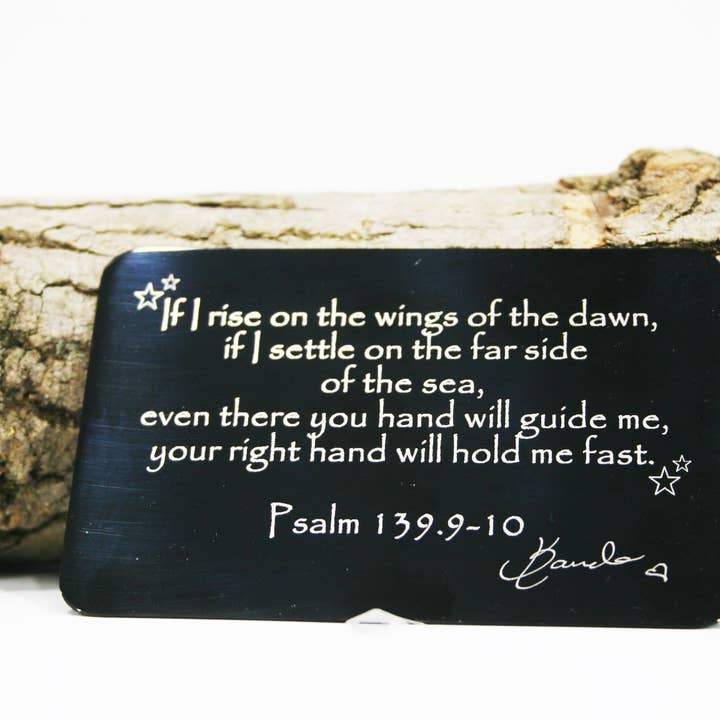 If I rise on the wings of the dawn,
if I settle on the far side
of the sea,
even there you hand will guide me,
your right hand will hold me fast.
Psalm 139.9-10